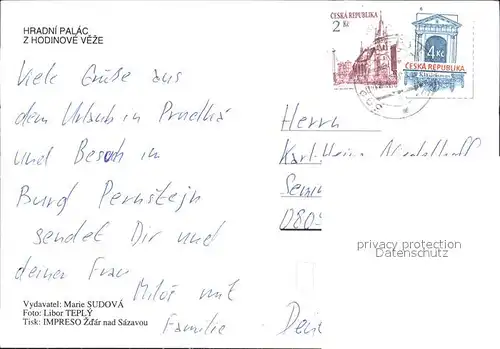 HRADNÍ PALÁC
Z HODINOVÉ VĚŽE
Viele Grüße aus
dem Urlaub in
und Besuch in
Burg Pernštejn
sendet Dir und
deiner Frau
Miloš mit
Familie
Vydavatel: Marie SUDOVÁ
Foto: Libor TEPLÝ
Tisk: IMPRESO Žďár nad Sázavou
ČESKÁ REPUBLIKA
2 Kč
4 Kč
ČESKÁ REPUBLIKA
Herrn
Karl-Heinz
D80
privacy protection
Datenschutz